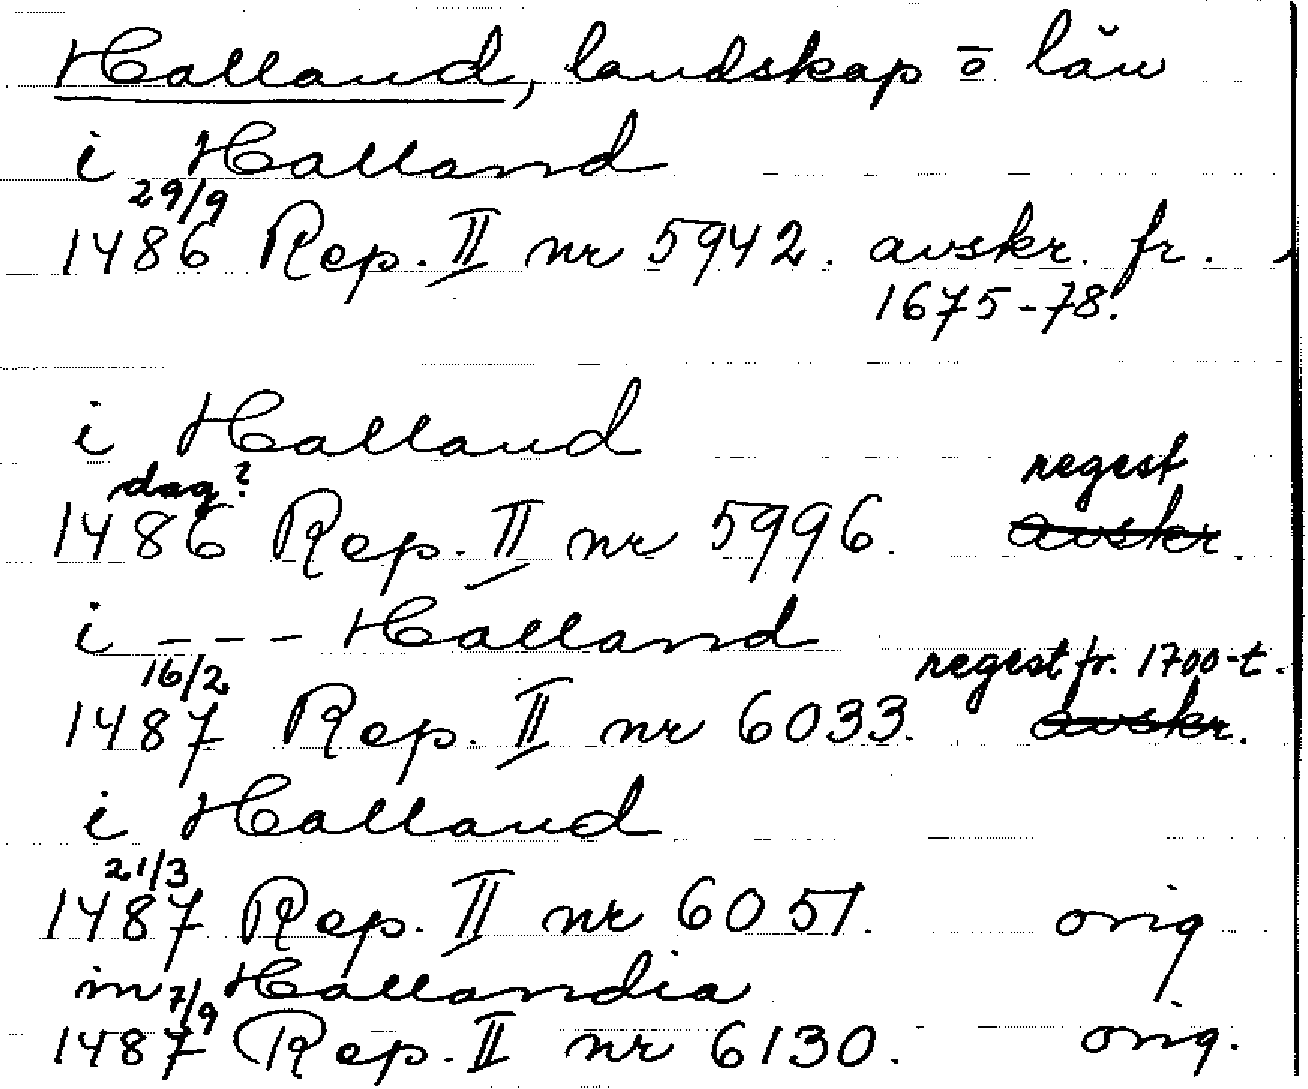 Halland, landskap o län
i Halland
29/9
1486 Rep. II nr 5942. avskr. fr.
1675-78.
i Halland
dag? regest
1486 Rep. II nr 5996. avskr.
i --- Halland
16/2 regest fr. 1700-t.
1487 Rep. II nr 6033. avskr.
i Halland
21/3
1487 Rep. II nr 6051. orig
in Hallandia
7/9
1487 Rep. II nr 6130. orig.